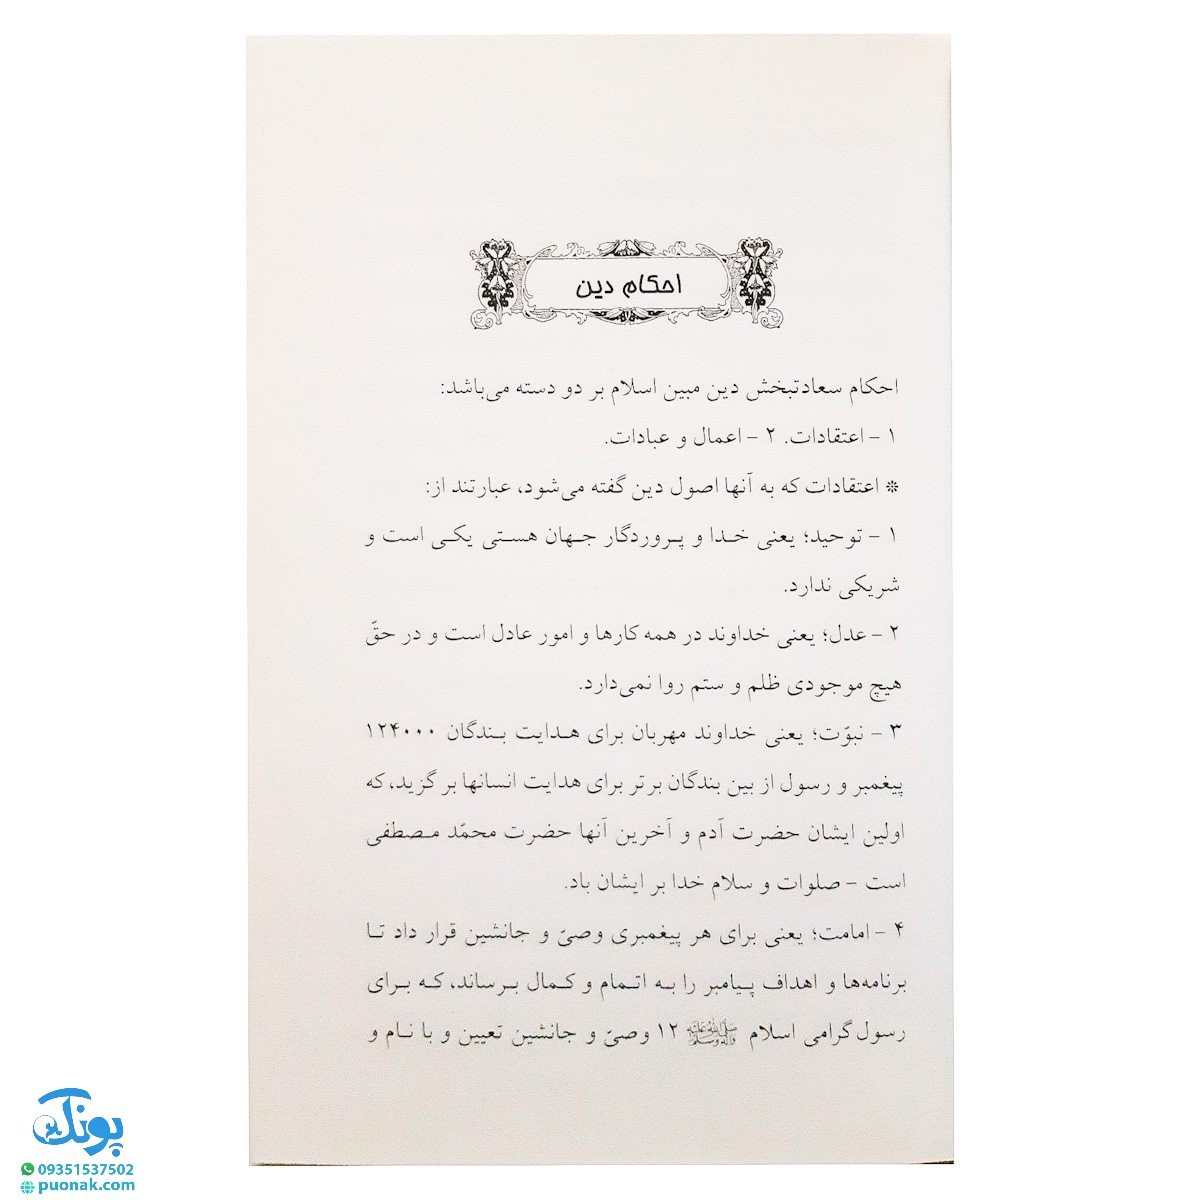 احکام دین
احکام سعادتبخش دین مبین اسلام بر دو دسته می‌باشد:
۱ - اعتقادات. ۲ - اعمال و عبادات.
* اعتقادات که به آنها اصول دین گفته می‌شود، عبارتند از:
۱ - توحید؛ یعنی خدا و پروردگار جهان هستی یکی است و
شریکی ندارد.
۲ - عدل؛ یعنی خداوند در همه کارها و امور عادل است و در حقّ
هیچ موجودی ظلم و ستم روا نمی‌دارد.
۳ - نبوّت؛ یعنی خداوند مهربان برای هدایت بندگان ۱۲۴۰۰۰
پیغمبر و رسول از بین بندگان برتر برای هدایت انسانها برگزید، که
اولین ایشان حضرت آدم و آخرین آنها حضرت محمّد مصطفی
است - صلوات و سلام خدا بر ایشان باد.
۴ - امامت؛ یعنی برای هر پیغمبری وصیّ و جانشین قرار داد تا
برنامه‌ها و اهداف پیامبر را به اتمام و کمال برساند، که برای
رسول گرامی اسلام صلی الله علیه وآله وسلم ۱۲ وصیّ و جانشین تعیین و با نام و
پونک
09351537502
puonak.com